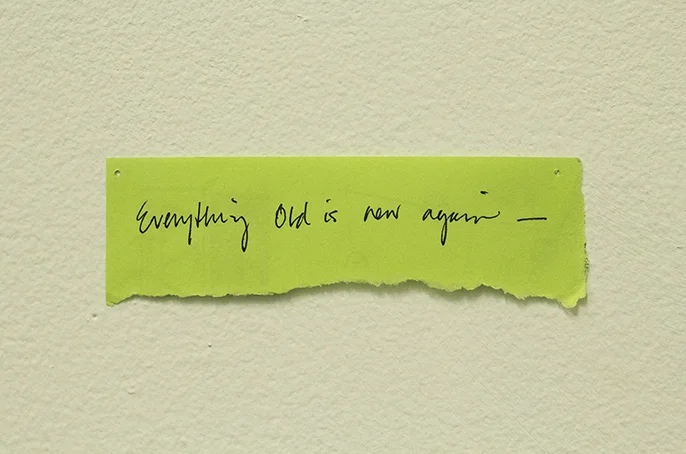 Everything Old is new again —